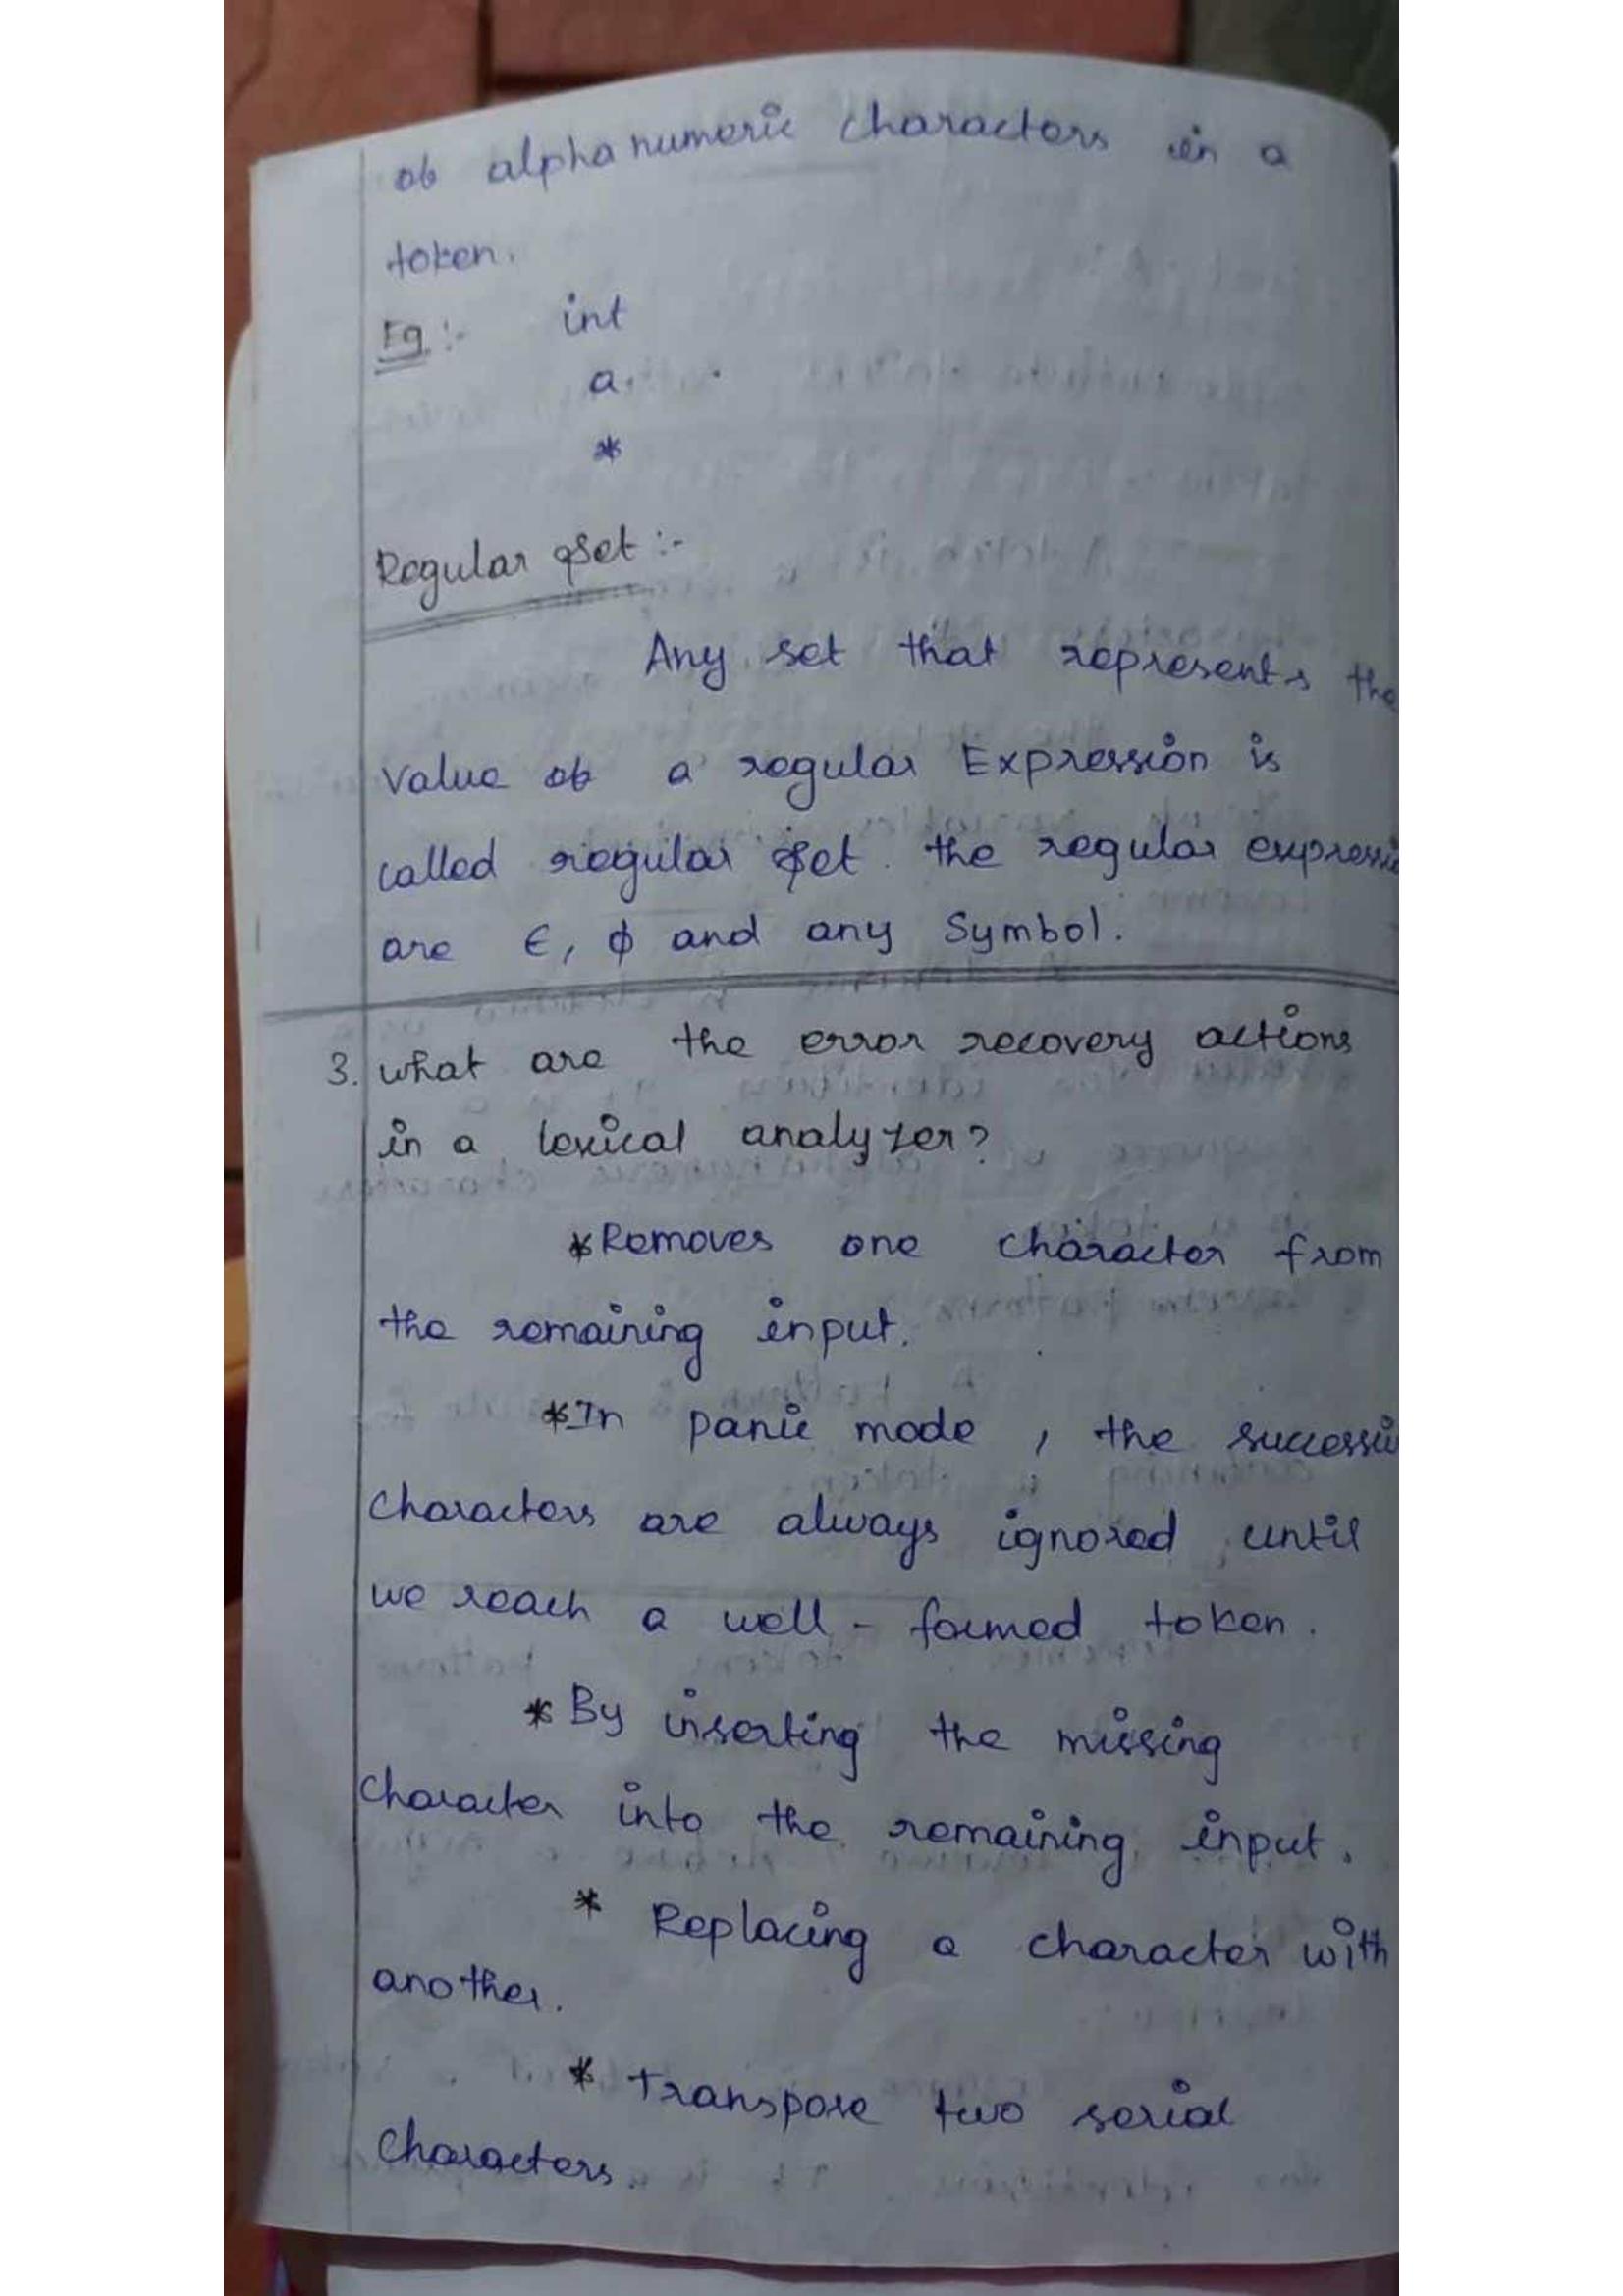 of alphanumeric characters in a
token.
Eg :- int
a
*
Regular Set :-
Any set that represents the
value of a regular Expression is
called regular set. the regular
are ϵ, ϕ and any Symbol.
3. what are the error recovery actions
in a lexical analyzer?
* Removes one character from
the remaining input.
* In panic mode, the
characters are always ignored until
we reach a well - formed token.
* By inserting the missing
character into the remaining input.
* Replacing a character with
another.
* Transpose two serial
characters.